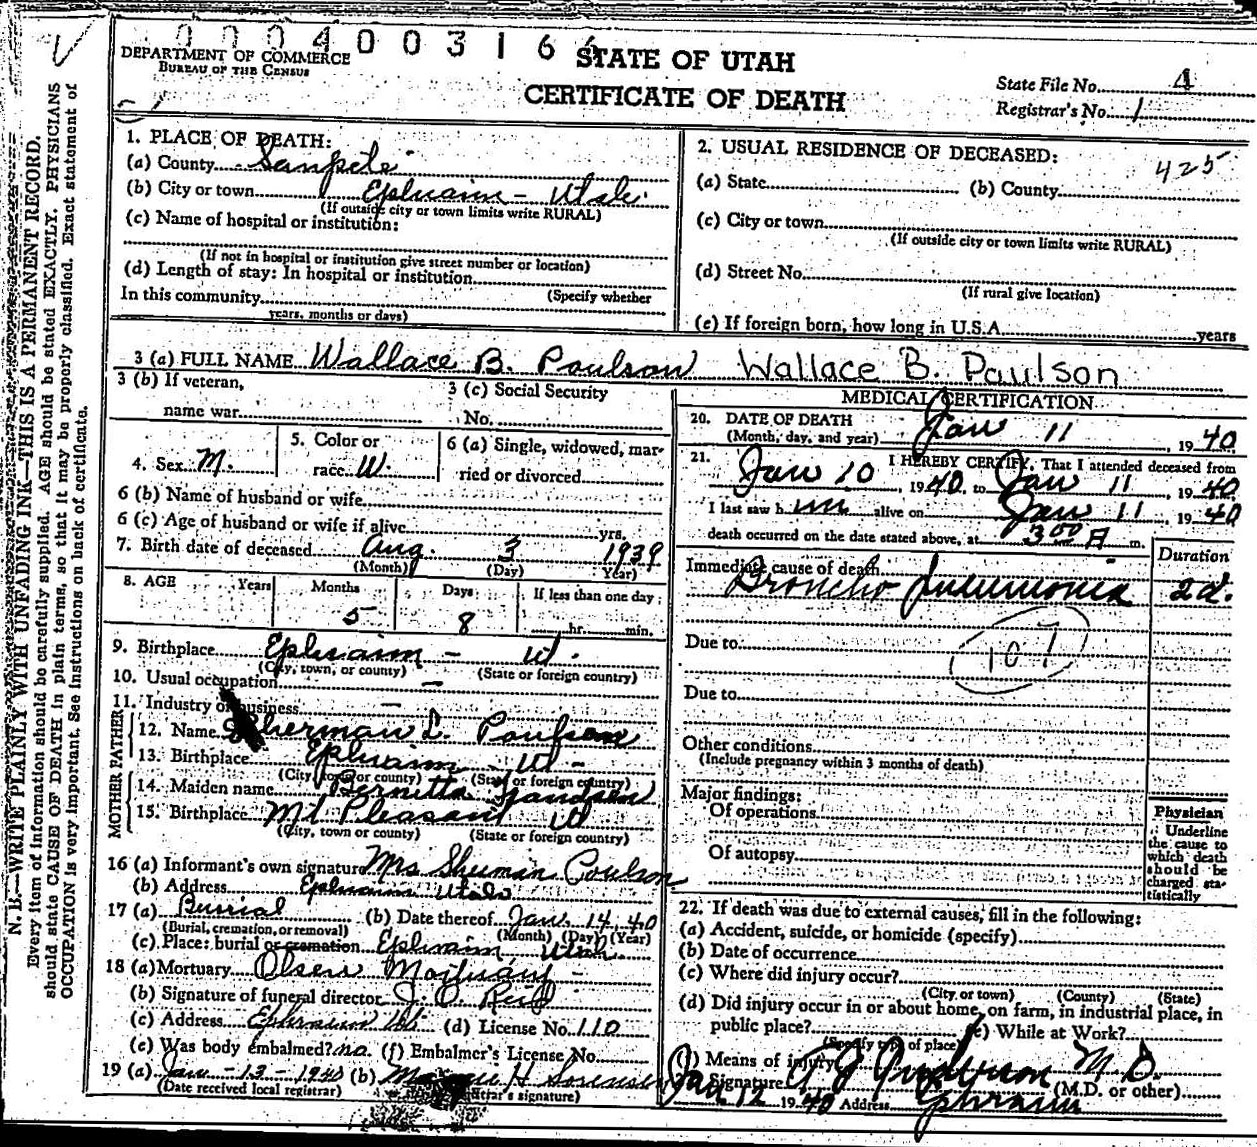 N. B.—WRITE PLAINLY WITH UNFADING INK—THIS IS A PERMANENT RECORD.
Every item of information should be carefully supplied. AGE should be stated EXACTLY. PHYSICIANS
should state CAUSE OF DEATH in plain terms, so that it may be properly classified. Exact statement of
OCCUPATION is very important. See instructions on back of certificate.
0004003166
DEPARTMENT OF COMMERCE
BUREAU OF THE CENSUS
STATE OF UTAH
CERTIFICATE OF DEATH
State File No. 4
Registrar's No. 1
1. PLACE OF DEATH:
(a) County Sanpete
(b) City or town Ephraim - Utah
(If outside city or town limits write RURAL)
(c) Name of hospital or institution:
(If not in hospital or institution give street number or location)
(d) Length of stay: In hospital or institution
(Specify whether
In this community
years, months or days)
2. USUAL RESIDENCE OF DECEASED:
425
(a) State (b) County
(c) City or town
(If outside city or town limits write RURAL)
(d) Street No.
(If rural give location)
(e) If foreign born, how long in U.S.A. years
3 (a) FULL NAME Wallace B. Paulson Wallace B. Paulson
3 (b) If veteran,
name war
3 (c) Social Security
No.
4. Sex M.
5. Color or
race W.
6 (a) Single, widowed, mar-
ried or divorced
6 (b) Name of husband or wife
6 (c) Age of husband or wife if alive yrs.
7. Birth date of deceased Aug. 3 1939
(Month) (Day) Year)
8. AGE Years Months Days If less than one day
5 8 hr. min.
9. Birthplace Ephraim - Ut.
(City, town, or county) (State or foreign country)
10. Usual occupation —
11. Industry or business —
FATHER
12. Name Sherman L. Paulson
13. Birthplace Ephraim Ut -
(City, town or county) (State or foreign country)
MOTHER
14. Maiden name Bernitta
15. Birthplace Mt Pleasant Ut
(City, town or county) (State or foreign country)
16 (a) Informant's own signature Mrs Sherman Poulson
(b) Address Ephraim Utah
17 (a) Burrial (b) Date thereof Jan. 14 40
(Burial, cremation, or removal) (Month) (Day) (Year)
(c) Place: burial or cremation Ephraim Utah.
18 (a) Mortuary Olsen Mortuary -
(b) Signature of funeral director
(c) Address Ephraim Ut (d) License No. 110
(e) Was body embalmed? no. (f) Embalmer's License No.
19 (a) Jan - 13 - 1940 (b) H Sorensen
(Date received local registrar) (Registrar's signature)
MEDICAL CERTIFICATION
20. DATE OF DEATH
(Month, day, and year) Jan 11 , 1940
21. I HEREBY CERTIFY, That I attended deceased from
Jan 10 , 1940, to Jan 11 , 1940
I last saw him alive on Jan 11 , 1940
death occurred on the date stated above, at 3 00 A m.
Duration
Immediate cause of death
Broncho Pneumonia 2 d.
Due to
107
Due to
Other conditions
(Include pregnancy within 3 months of death)
Major findings:
Of operations
Of autopsy
Physician
Underline
the cause to
which death
should be
charged sta-
tistically
22. If death was due to external causes, fill in the following:
(a) Accident, suicide, or homicide (specify)
(b) Date of occurrence
(c) Where did injury occur?
(City or town) (County) (State)
(d) Did injury occur in or about home, on farm, in industrial place, in
public place? (e) While at Work?
(Specify type of place)
(f) Means of injury
Signature M D. (M.D. or other)
Jan 12 1940 Address Ephraim